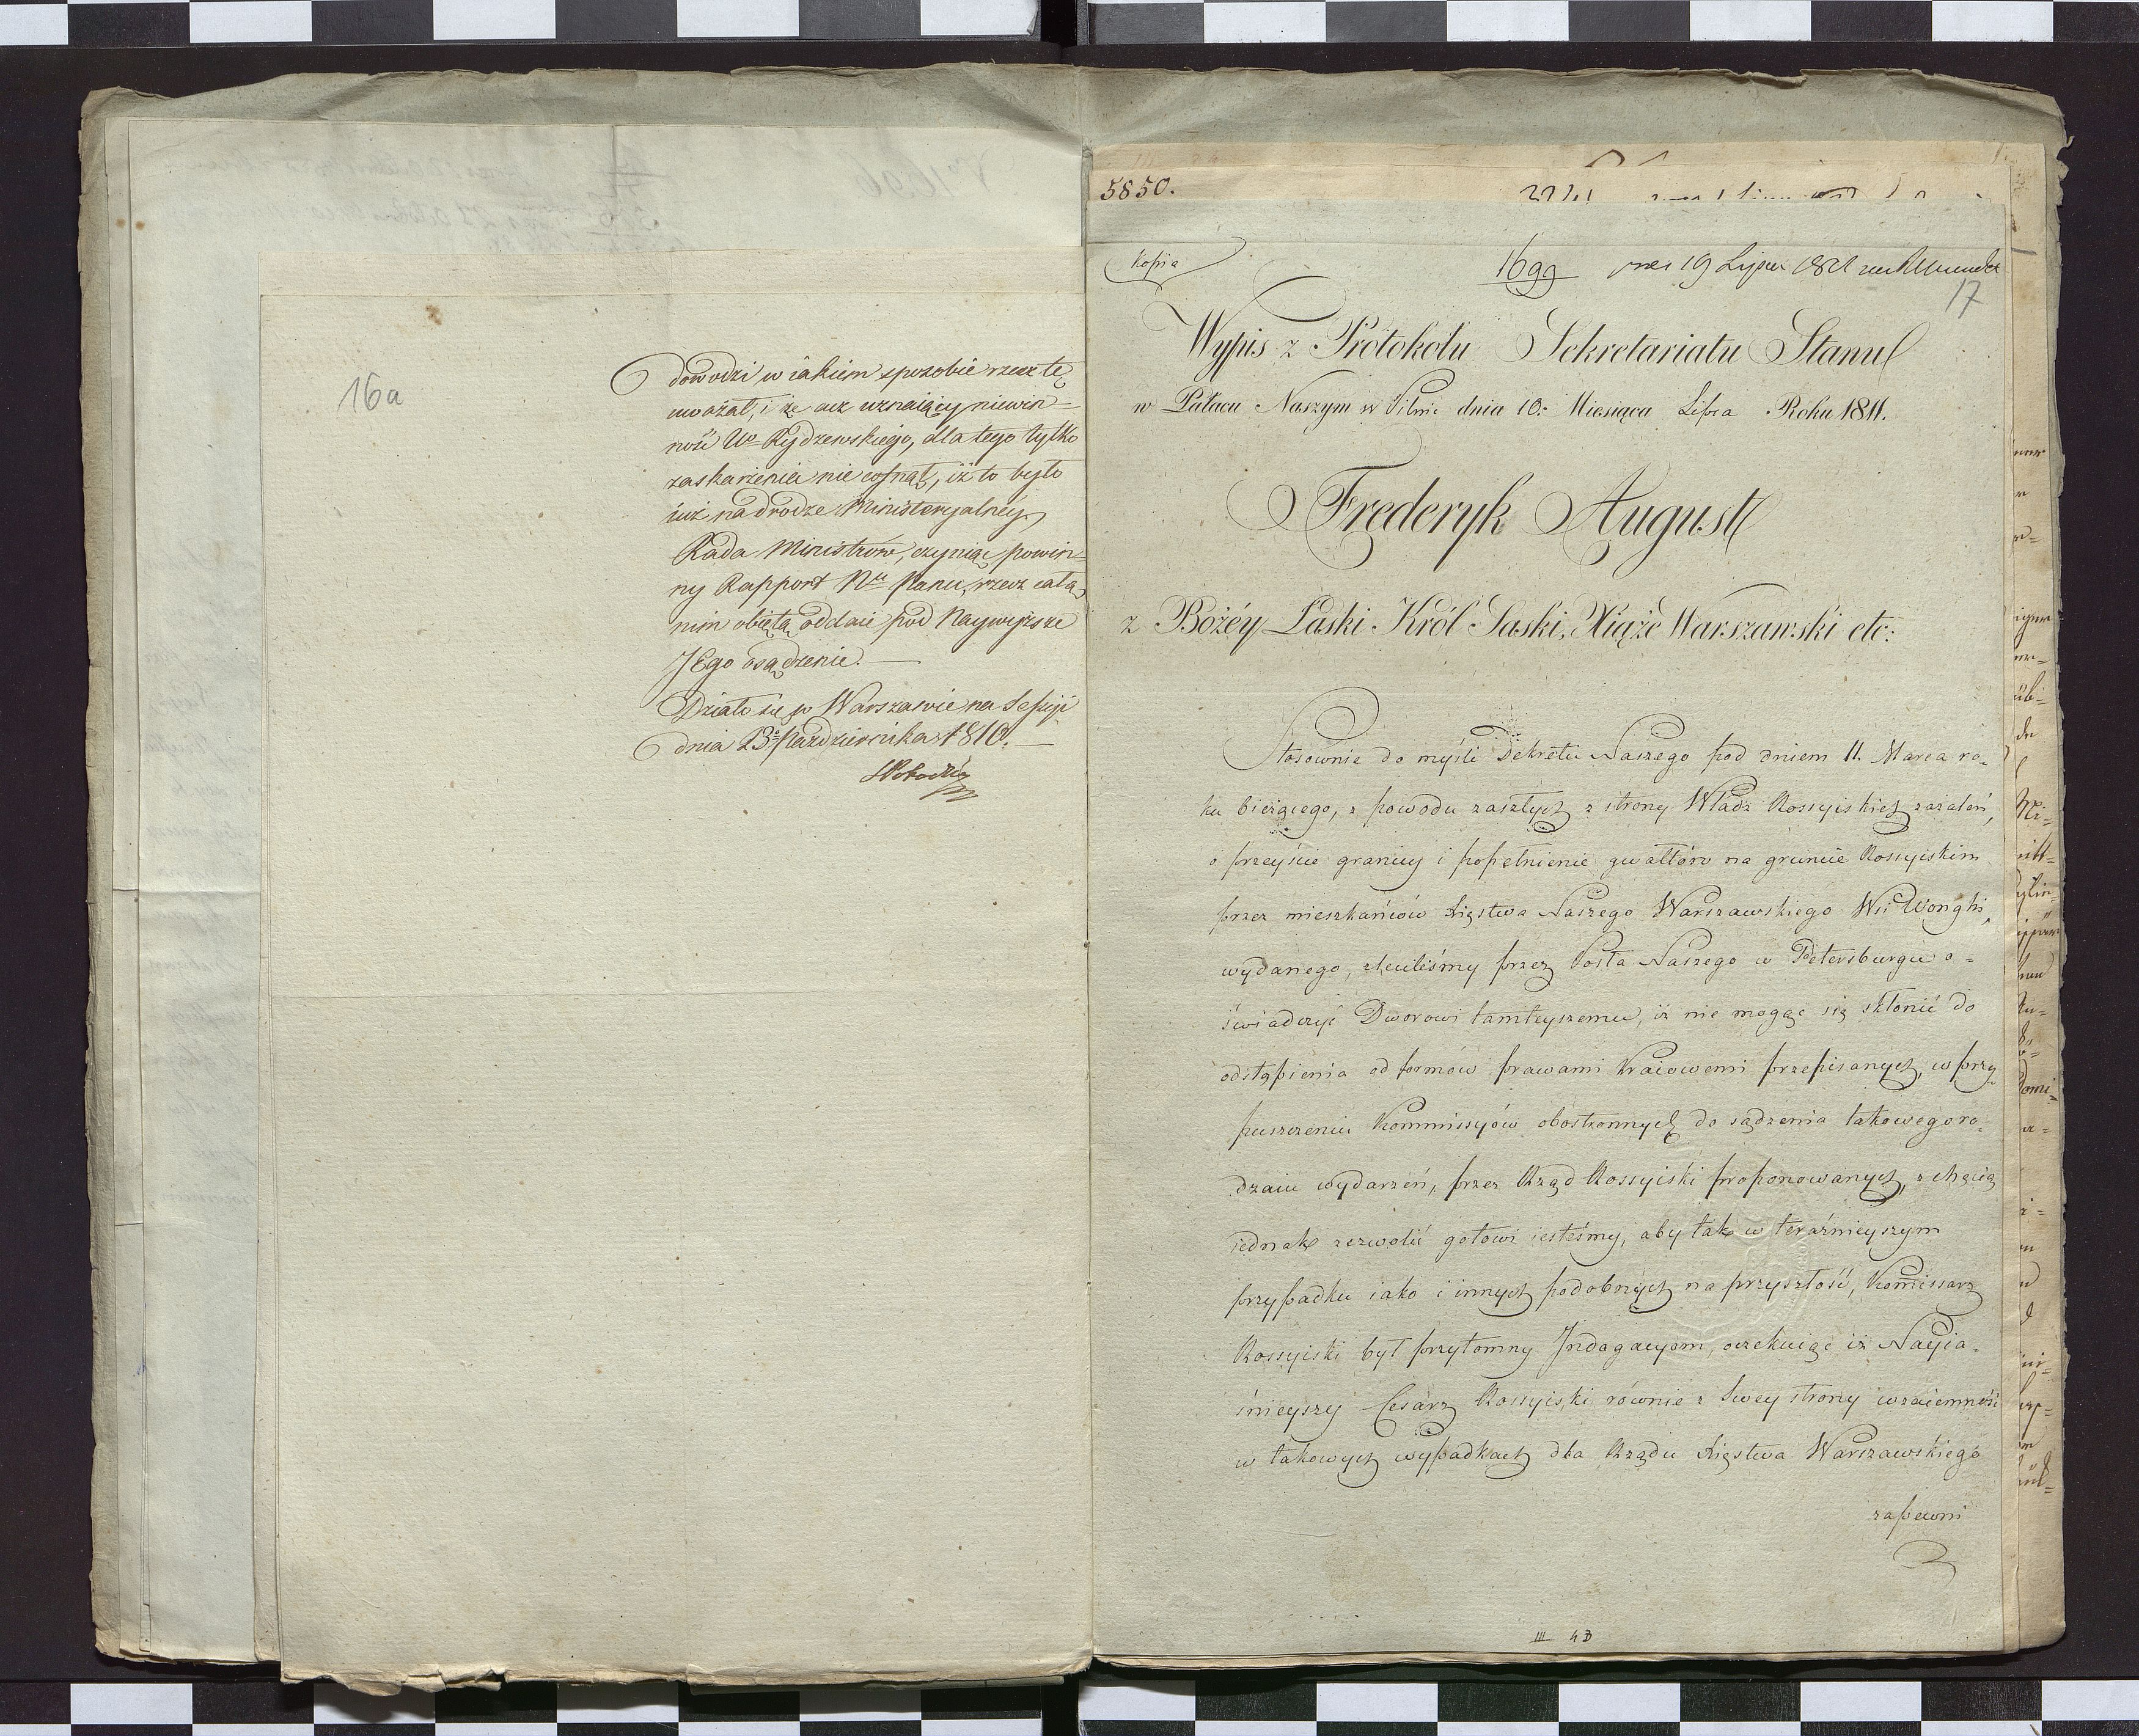 16a
dowodzi w iakiem sposobie rzecz tę
uważał, i że acz uznaiący niewin-
ność Uo Rydzewskiego, dla tego tylko
zaskarżenia nie cofnął, iż to było
iuż na drodze Ministeryalnéy.
Rada Ministrów, czyniąc powin-
ny Rapport Nu Panu, rzecz całą
nim obiętą oddaie pod Naywyższe
JEgo osądzenie.—
Działo się w Warszawie na Sessyi
dnia 23o Października 1810.—
5850.
Kopia
1699 19 Lipca 1811
17
Wypis z Protokołu Sekretariatu Stanu
w Pałacu Naszym w Pilnic dnia 10. Miesiąca Lipca Roku 1811.
Frederyk August
z Bożéy Łaski Król Saski, Xiąże Warszawski etc:
Stosownie do myśli Dekretu Naszego pod dniem 11. Marca ro-
ku bieżącego, z powodu zaszłych z strony Władz Rossyiskich zażaleń,
o przeyście granicy i popełnienie gwałtów na gruncie Rossyiskim
przez mieszkańców Xięstwa Naszego Warszawskiego Wsi Wonghi,
wydanego, zleciliśmy przez Posła Naszego w Petersburgu o=
świadczyć Dworowi tamteyszemu, iż nie mogąc się skłonić do
odstąpienia od formów prawami Kraiowemi przepisanych, w przy-
puszczeniu Kommissyów obostronnych do sądzenia takowego ro-
dzaiu wydarzeń, przez Rząd Rossyiski proponowanych, z chęcią
iednak zezwolić gotowi iesteśmy, aby tak w teraźnieyszym
przypadku iako i innych podobnych na przyszłość, Komissarz
Rossyiski był przytomny Jndagacyom, oczekuiąc iż Nayia-
śnieyszy Cesarz Rossyiski równie z Swey strony wzaiemność
w takowych wypadkach dla Rządu Xięstwa Warszawskiego
zapewni
III 43